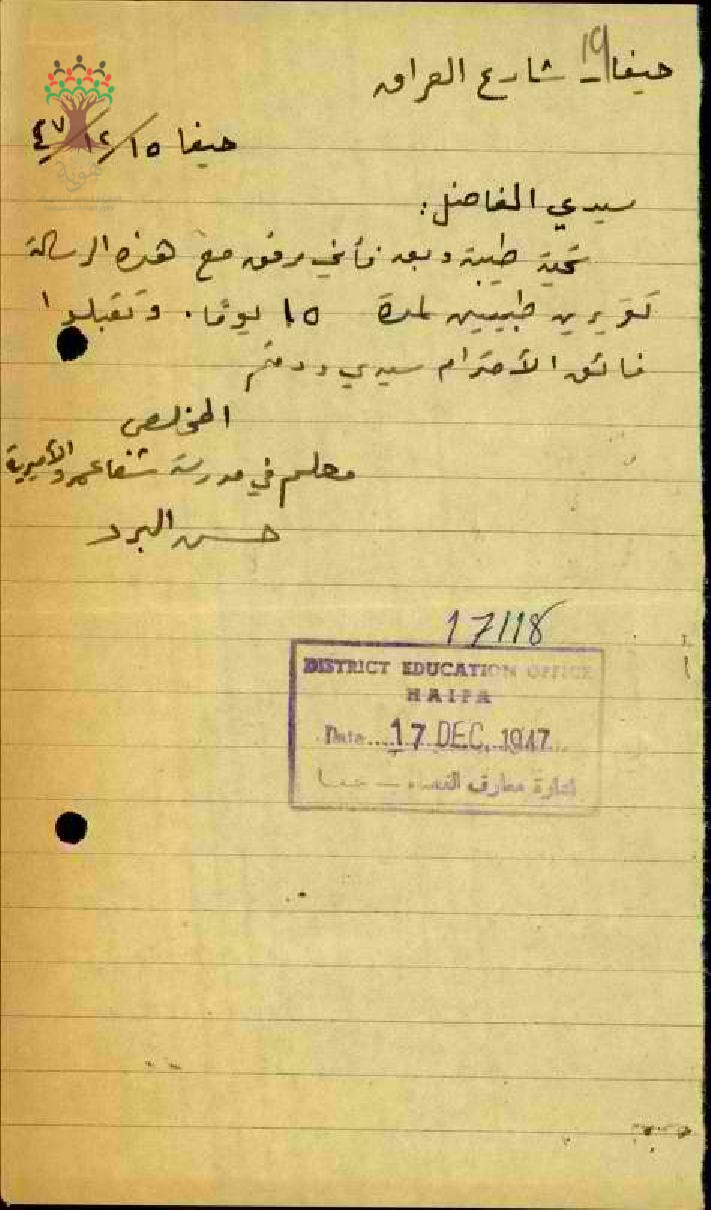 19
حيفا - شارع العراق
حيفا ١٥/١٢/٤٧
سيدي الفاضل:
تحية طيبة وبعد فأني مرفق مع هذه الرسالة
تقريرين طبيين لمدة ١٥ يومًا. وتقبلوا
فائق الأحترام سيدي ودمتم
المخلص
معلم في مدرسة شفاعمرو الأميرية
حسن البرد
17/18
DISTRICT EDUCATION OFFICE
HAIFA
Date....17 DEC. 1947
ادارة معارف القضاء - حيفا
هوية